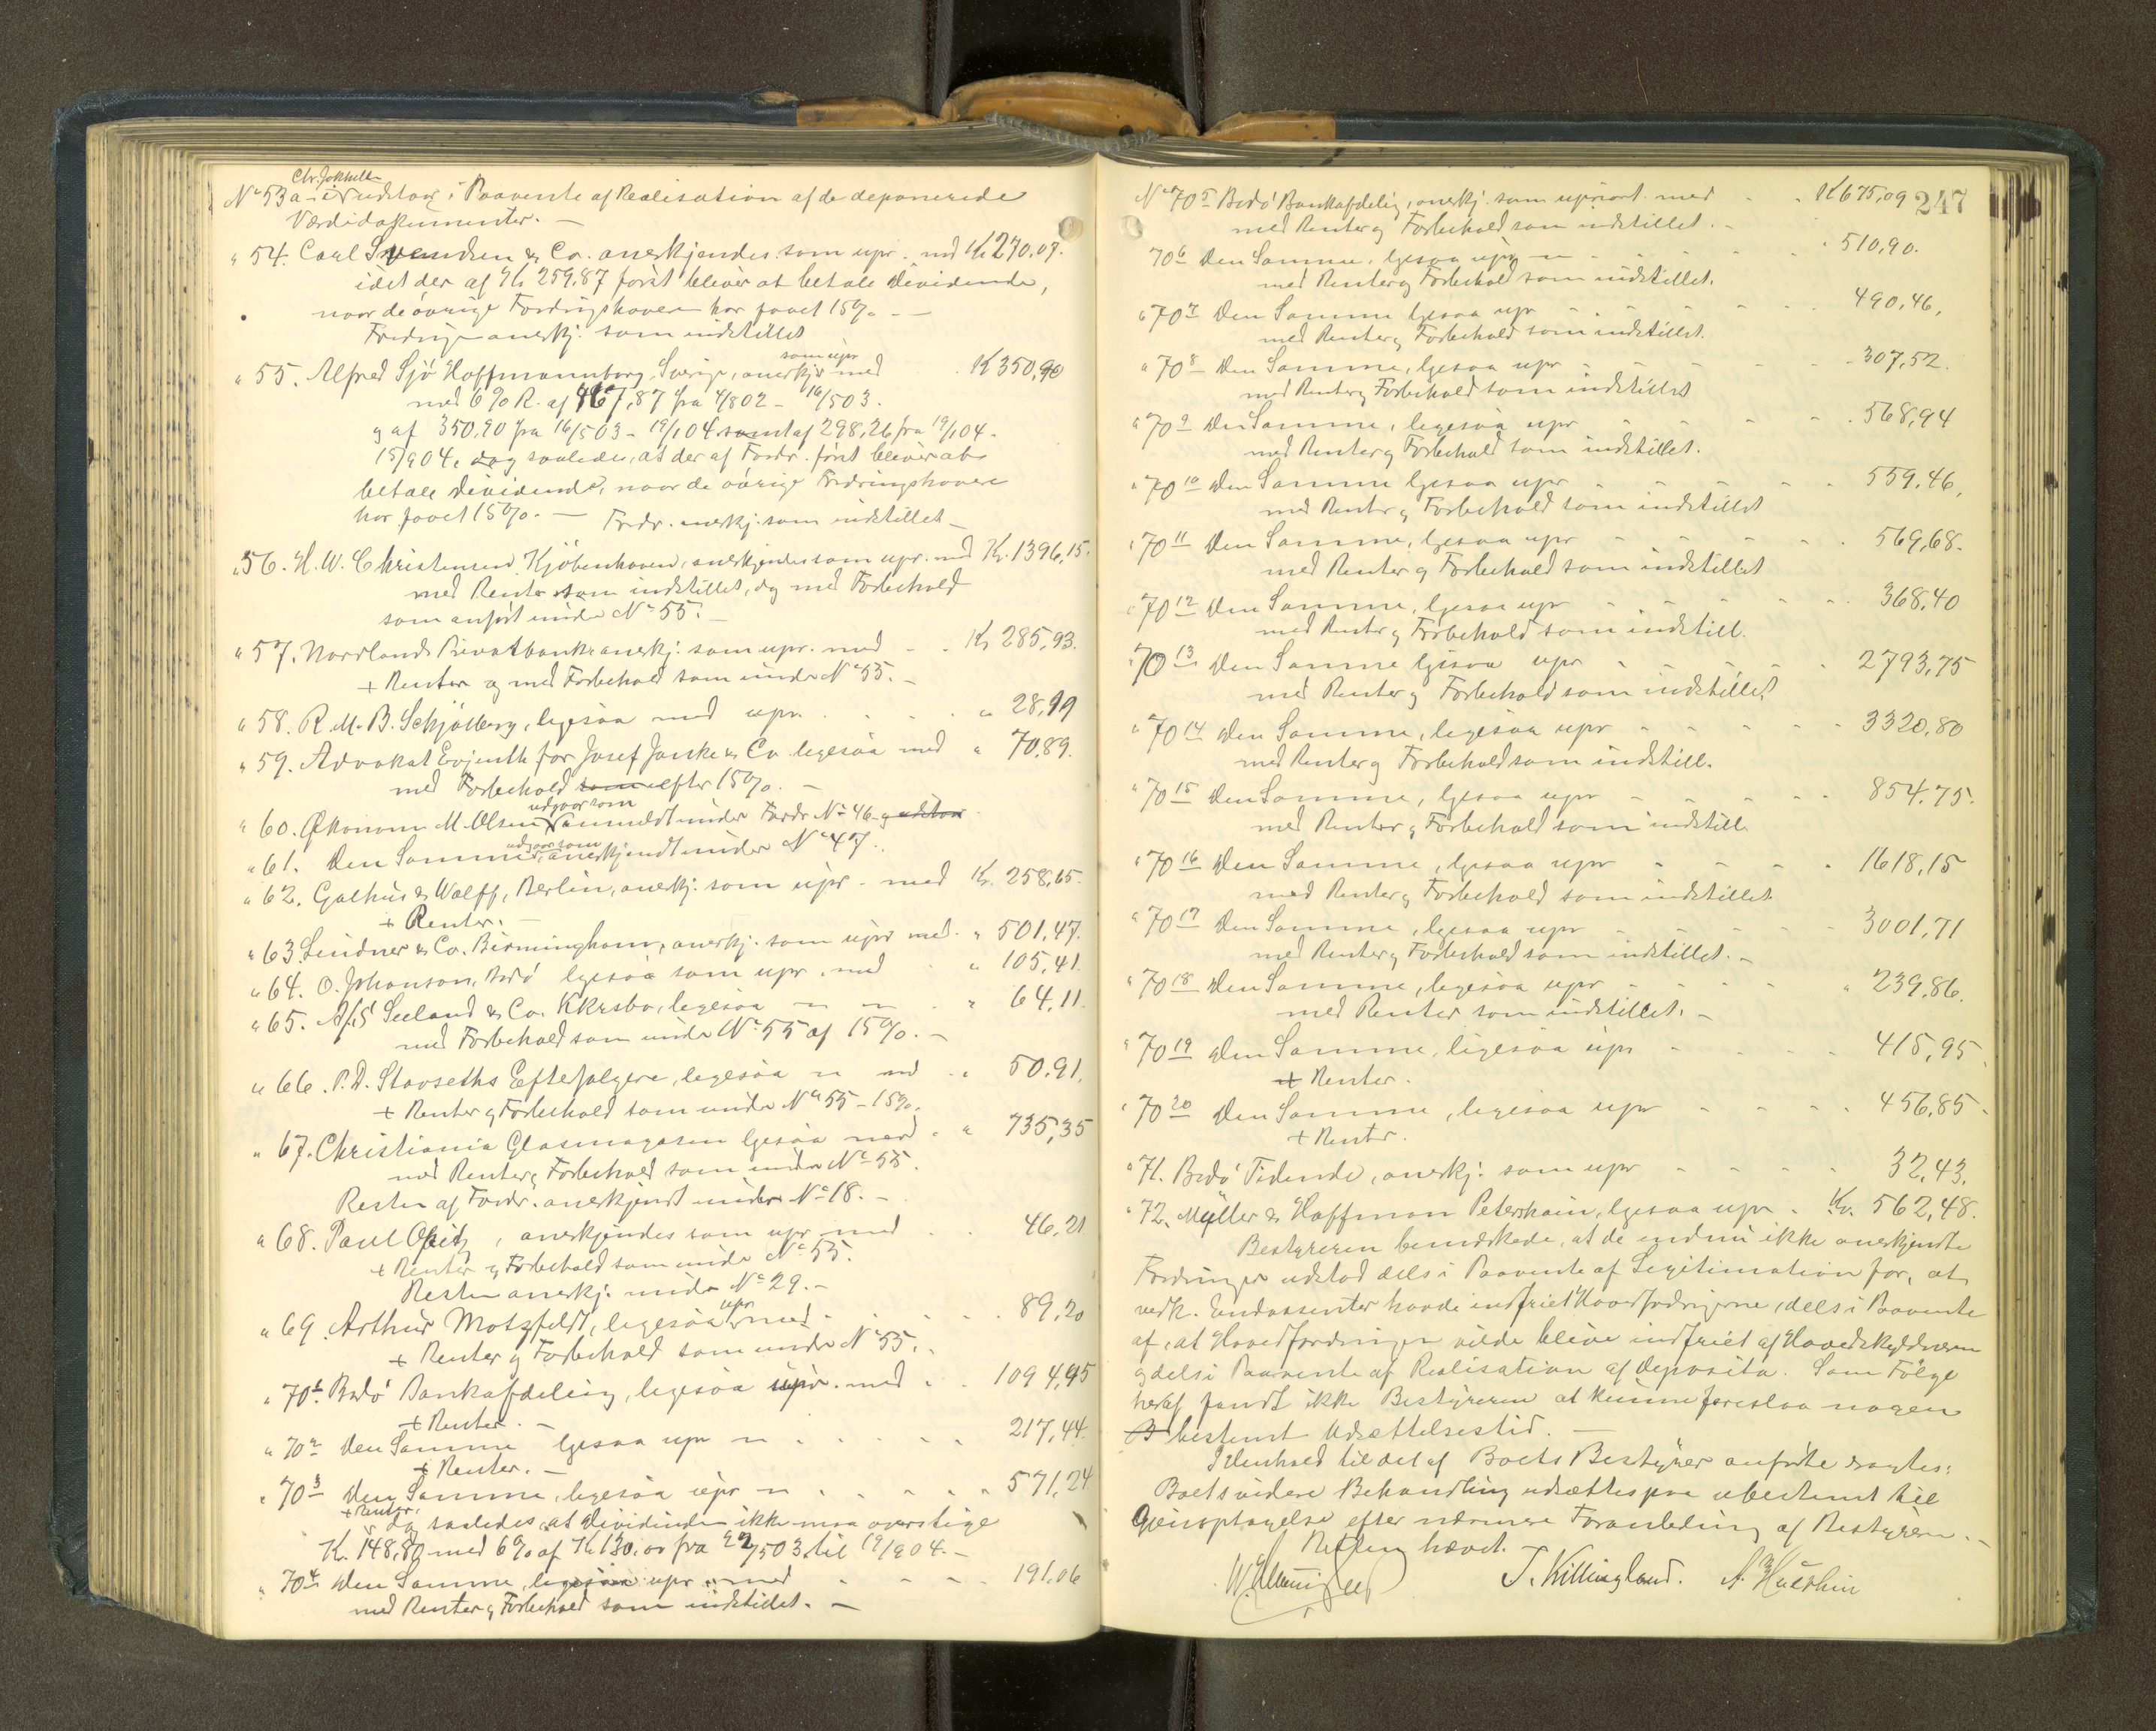 No 53a-i udstaar i Paavente af Realisation af de deponerede
Værdidokumenter. —
" 54. Carl Svendsen & Co. anerkjendes som upr. med Kr 270.07.
idet der af Kr 259,87 först bliver at betale Dividende,
naar de övrige Fordringshavere har faaet 15%. —
Fordringen anerkj. som indstillet
som upr
" 55. Alfred Sjö Hoffmanntorg, Sverige, anerkj. med K 350,90
med 6% R. af 467,87 fra 4/802 - 16/503.
og af 350,90 fra 16/503 - 19/104 samt af 298,26 fra 19/104 -
15/904, dog saaledes, at der af Fordr. först bliver at
betale Dividende, naar de övrige Fordringshavere
har faaet 15%. — Fordr. anerkj. som indstillet —
" 56. H. W. Christensen, Kjöbenhavn, anerkjendes som upr. med Kr. 1396,15.
med Renter som indstillet, og med Forbehold
som anfört under No 55. —
" 57. Nordlands Privatbank anerkj. som upr. med - - Kr 285,93.
+ Renter og med Forbehold som under No 55. —
" 58. R. M. B. Schjölberg, ligesaa med upr. . . . " 28,99
" 59. Advokat Evjenth for Josef Janke & Co ligesaa med " 70,89.
med Forbehold som efter 15%. —
udgaar som
" 60. Økonom M. Olsen anmeldt under Fordr No 46 og udstaar
udgaar som
" 61. Den Samme, anerkjendt under No 47.
" 62. Galhus & Wolff, Berlin, anerkj. som upr. med Kr. 258,65.
+ Renter. —
" 63. Lindner & Co. Birmingham, anerkj. som upr med . " 501,47.
" 64. O. Johanson, Bodö ligesaa som upr. med . " 105,41.
" 65. A/S Seeland & Co. ligesaa — — . " 64,11.
med Forbehold som under No 55 af 15%. —
" 66. P. D. Stavseths Efterfølgere, ligesaa — med . " 50.91.
+ Renter og Forbehold som under No 55 - 15%.
" 67. Christiania Glasmagasin ligesaa med . " 735,35
med Renter og Forbehold som under No 55.
Resten af Fordr. anerkjendt under No 18. —
" 68. Paul Opitz, anerkjendes som upr med . . 46,21
+ Renter og Forbehold som under No 55.
Resten anerkj. under No 29. —
upr
" 69. Arthur Motzfeldt, ligesaa med . . . . 89,20
+ Renter og Forbehold som under No 55. .
" 70 1 Bodö Bankafdeling, ligesaa upr. med . . 1094,95
+ Renter. —
" 70 2 Den Samme ligesaa upr — . . . . 217,44.
+ Renter. —
" 70 3 Den Samme, ligesaa upr — . . . . " 571,24
+ Renter.
dog saaledes, at Dividenden ikke maa overstige
K. 148,80 med 6% af Kr 130,00 fra 22/503 til 19/904. —
" 70 4 Den Samme, ligesaa upr. med - - - - 191,06
med Renter og Forbehold som indstillet. —
247
No 70 5 Bodö Bankafdeling, anerkj. som upriort. med - . K 675,09
med Renter og Forbehold som indstillet. -
70 6 Den Samme, ligesaa upr — . . . . " 510,90.
med Renter og Forbehold som indstillet.
" 70 7 Den Samme ligesaa upr . . . . 490,46,
med Renter og Forbehold som indstillet.
" 70 8 Den Samme, ligesaa upr - - - - - 307,52.
med Renter og Forbehold som indstillet
" 70 9 Den Samme, ligesaa upr - - - . 568,94
med Renter og Forbehold som indstillet.
" 70 10 Den Samme ligesaa upr - - - - 559,46,
med Renter og Forbehold som indstillet
" 70 11 Den Samme, ligesaa upr - - - - . 569,68.
med Renter og Forbehold som indstillet
" 70 12 Den Samme, ligesaa upr - - - - 368,40
med Renter og Forbehold som indstill.
" 70 13 Den Samme ligesaa upr - - - - 2793,75
med Renter og Forbehold som indstillet
" 70 14 Den Samme, ligesaa upr - - - - 3320,80
med Renter og Forbehold som indstill.
" 70 15 Den Samme, ligesaa upr - - - - 854,75.
med Renter og Forbehold som indstill.
" 70 16 Den Samme, ligesaa upr - - - . 1618,15
med Renter og Forbehold som indstillet
" 70 17 Den Samme, ligesaa upr - - - - 3001,71
med Renter og Forbehold som indstillet. -
" 70 18 Den Samme, ligesaa upr - - - - " 239,86.
med Renter som indstillet. -
" 70 19 Den Samme, ligesaa upr - - - - 415,95
+ Renter.
" 70 20 Den Samme, ligesaa upr - - - . 456,85 -
+ Renter.
" 71. Bodö Tidende, anerkj. som upr - - - - 32,43,
" 72. Müller & Hoffman Petershain, ligesaa upr . Kr. 562,48.
Bestyreren bemærkede, at de endnu ikke anerkjendte
Fordringer udstod dels i Paavente af Legitimation for, at
vedk. Endossenter havde indfriet Hovedfordringerne, dels i Paavente
af, at Hovedfordringen vilde blive indfriet af Hovedskyldneren
og dels i Paavente af Realisation af Deposita. Som Fölge
heraf fandt ikke Bestyreren at kunne foreslaa nogen
bestemt Udsættelsestid. —
I Henhold til det af Boets Bestyrer anförte
Boets videre Behandling udsættes paa ubestemt til
Gjenoptagelse efter nærmere Foranledning af Bestyreren. —
Retten hævet.
J. Killingland.